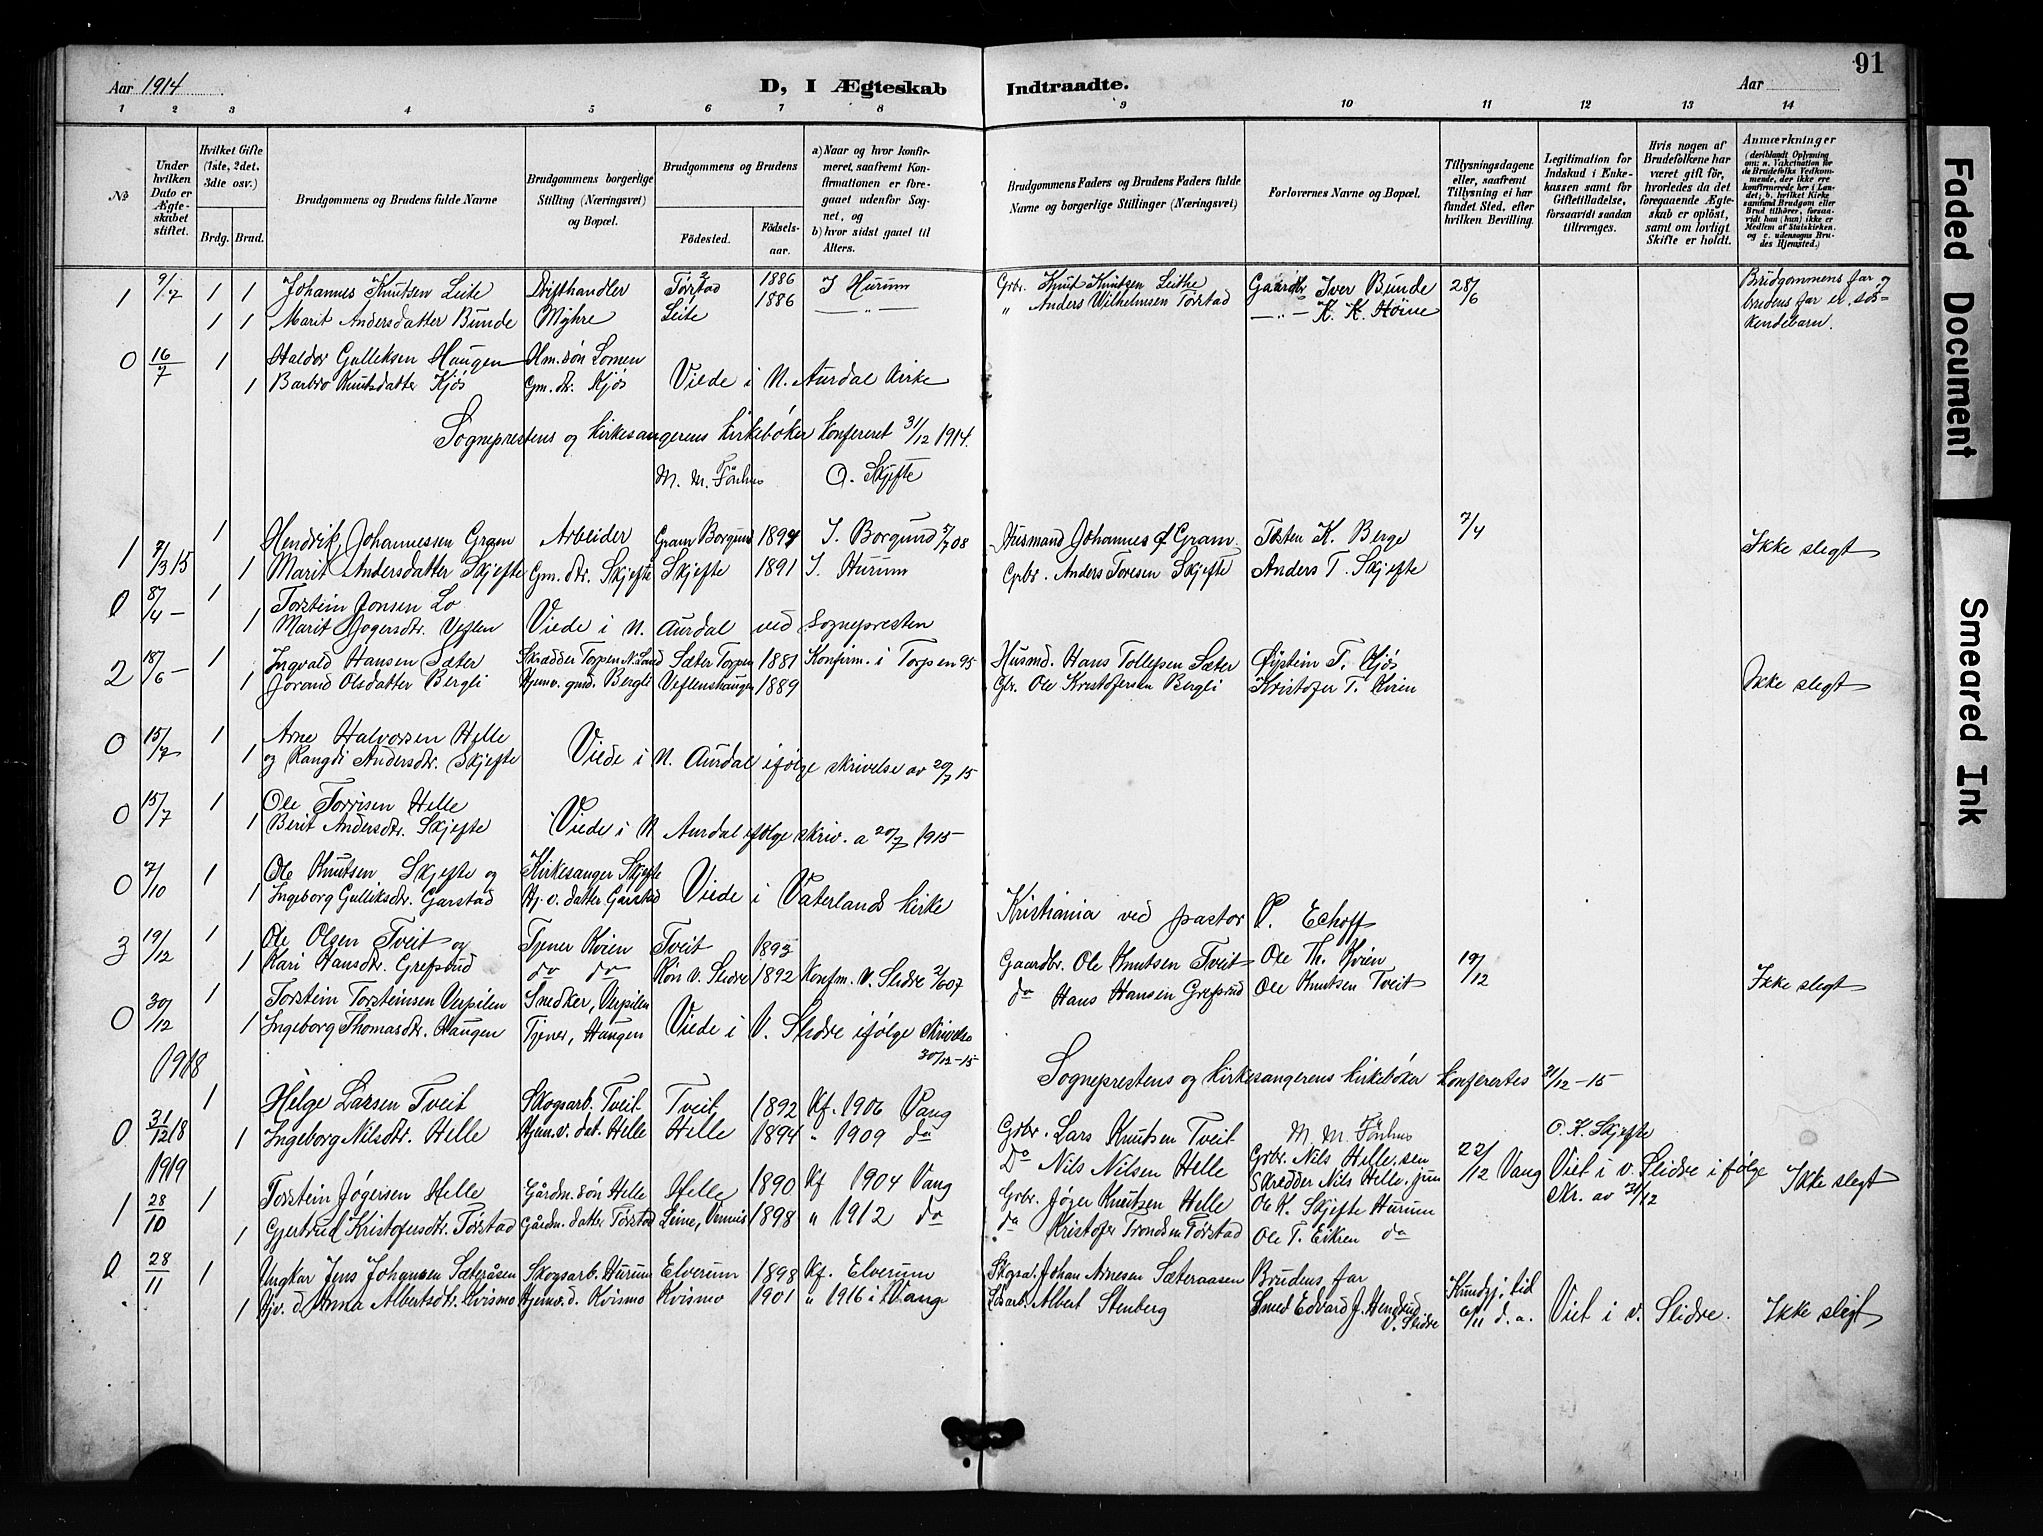 91
Aar 1914
D, I Ægteskab Indtraadte.
Aar
1 2 3 4 5 6 7 8 9 10 11 12 13 14
No
Under hvilken Dato er Ægteskabet stiftet.
Hvilket Gifte (1ste, 2det, 3die osv.)
Brdg. Brud.
Brudgommens og Brudens fulde Navne
Brudgommens borgerlige Stilling (Næringsvei) og Bopæl.
Brudgommens og Brudens
Födested.
Födselsaar.
a) Naar og hvor konfirmeret, saafremt Konfirmationen er foregaaet udenfor Sognet, og
b) hvor sidst gaaet til Alters.
Brudgommens Faders og Brudens Faders fulde Navne og borgerlige Stillinger (Næringsvei)
Forlovernes Navne og Bopæl.
Tillysningsdagene eller, saafremt Tillysning ei har fundet Sted, efter hvilken Bevilling.
Legitimation for Indskud i Enkekassen samt for Giftetilladelse, forsaavidt saadan tiltrænges.
Hvis nogen af Brudefolkene har været gift för, hvorledes da det foregaaende Ægteskab er oplöst, samt om lovligt Skifte er holdt.
Anmærkninger
(deriblandt Oplysning om: a. Vakcination for de Brudefolks Vedkommende, der ikke ere konfirmerede her i Landet; b. hvilket Kirkesamfund Brudgom eller Brud tilhörer, forsaavidt han (hun) ikke er Medlem af Statskirken, og c. udensogns Brudes Hjemsted.)
1 9/7 1 1 Johannes Knutsen Leite Drifthandler Törstad 1886 I Hurum Grbr. Knut Knutsen Leithe Gaardbr Iver Bunde 28/6 Brudgommens far og
1 1 Marit Andersdatter Bunde Myhre Leite 1886 — " — " Anders Wilhelmsen Törstad — " — K. K. Höine brudens far er søs-
kendebarn.
0 16/7 1 Haldor Gulleksen Haugen Hm. søn Lomen
1 Barbro Knutsdatter Kjøs Gm. dtr. Kjøs Viede i N. Aurdal kirke
Sogneprestens og kirkesangerens kirkebøker konfereret 31/12 1914.
M. M. Fönhus O. Skjefte
1 7/3 15 1 Hendrik Johannessen Gram Arbeider Gram Borgund 1894 I. Borgund 5/7 08 Husmand Johannes Gram Tosten K. Berge 7/4
1 Marit Andersdatter Skjefte Gm. dtr. Skjefte Skjefte 1891 I. Hurum Grbr. Anders Toresen Skjefte Anders T. Skjefte Ikke slegt
0 1 Torstein Jonsen Lo
1 Marit Jøgersdtr. Veflen Viede i N. Aurdal ved Sognepresten
2 18/6 — 1 Ingvald Hansen Sæter Skrædder Torpen N. Land Sæter Torpen 1881 Konfirm. i Torpen 95 Husmd. Hans Tollefsen Sæter Øistein T. Kjøs
1 Jorand Olsdatter Bergli Hjemv. gmd. Bergli Veflenshaugen 1889 Gbr. Ole Kristofersen Bergli Kristofer T. Kvien Ikke slegt
0 15/7 1 Arne Halvorsen Helle
1 og Rangdi Andersdtr. Skjefte Viede i N. Aurdal ifølge skrivelse av 20/7 15
0 15/7 1 Ole Torrisen Helle
1 Berit Andersdtr. Skjefte Viede i N Aurdal ifølge skriv. a 20/7 1915
0 7/10 1 Ole Knutsen Skjefte og Kirkesanger Skjefte
1 Ingeborg Gulliksdtr. Garstad Hj. v. datter Garstad Viede i Vaterlands kirke Kristiania ved pastor P. Echoff
3 19/12 1 Ole Olsen Tveit og Tjener Kvien Tveit 1893 Gaardbr. Ole Knutsen Tveit Ole Th. Kvien 19/12
1 Kari Hansdtr. Grefsrud do do Kön V. Slidre 1892 Konfm. V. Slidre 07 do Hans Hansen Grefsrud Ole Knutsen Tveit Ikke slegt
0 30/12 1 Torstein Torsteinsen Verpilen Snedker, Verpilen
1 Ingeborg Thomasdtr. Haugen Tjener, Haugen Viede i V. Slidre ifølge skrivelse
30/12-15
1918
Sogneprestens og kirkesangerens kirkebøker konferertes 31/12-15
M. M. Fönhus O. K. Skjefte
0 31/12 18 1 Helge Larsen Tveit Skogsarb. Tveit Tveit 1892 Kf. 1906 Vang Grbr. Lars Knutsen Tveit Grbr. Nils Helle, sen 22/12 Vang Viet i v. Slidre ifølge
1 Ingeborg Nilsdtr. Helle Hjem. v. dat. Helle Helle 1894 " 1909 do Do Nils Nilsen Helle Skredder Nils Helle, jun Skr. av 31/12 Ikke slegt
1919
1 28/10 1 Torstein Jøgersen Helle Gårdm. søn Helle Helle 1890 Kf 1904 Vang Grbr. Jøger Knutsen Helle Ole K. Skjefte Hurum
1 Gjertrud Kristofersdtr. Törstad Gårdm. datter Törstad Leine, Vennis 1898 " 1912 do do Kristofer Trondsen Törstad Ole T. Eikren do
0 28/11 1 Ungkar Jens Johansen Sæteråsen Skogsarb. Hurum Elverum 1898 Kf. Elverum Skogsa. Johan Arnesen Sæteraasen Brudens far Kundgj. tid
1 Hjv. d. Anna Albertsdtr. Kvismo Hjemv. d. Kvismo Kvismo 1901 " 1916 i Vang Albert Stenberg Smed Edvard J. Hendrud V. Slidre d. a. Viet i v. Slidre. Ikke slegt
Faded Document
Smeared Ink